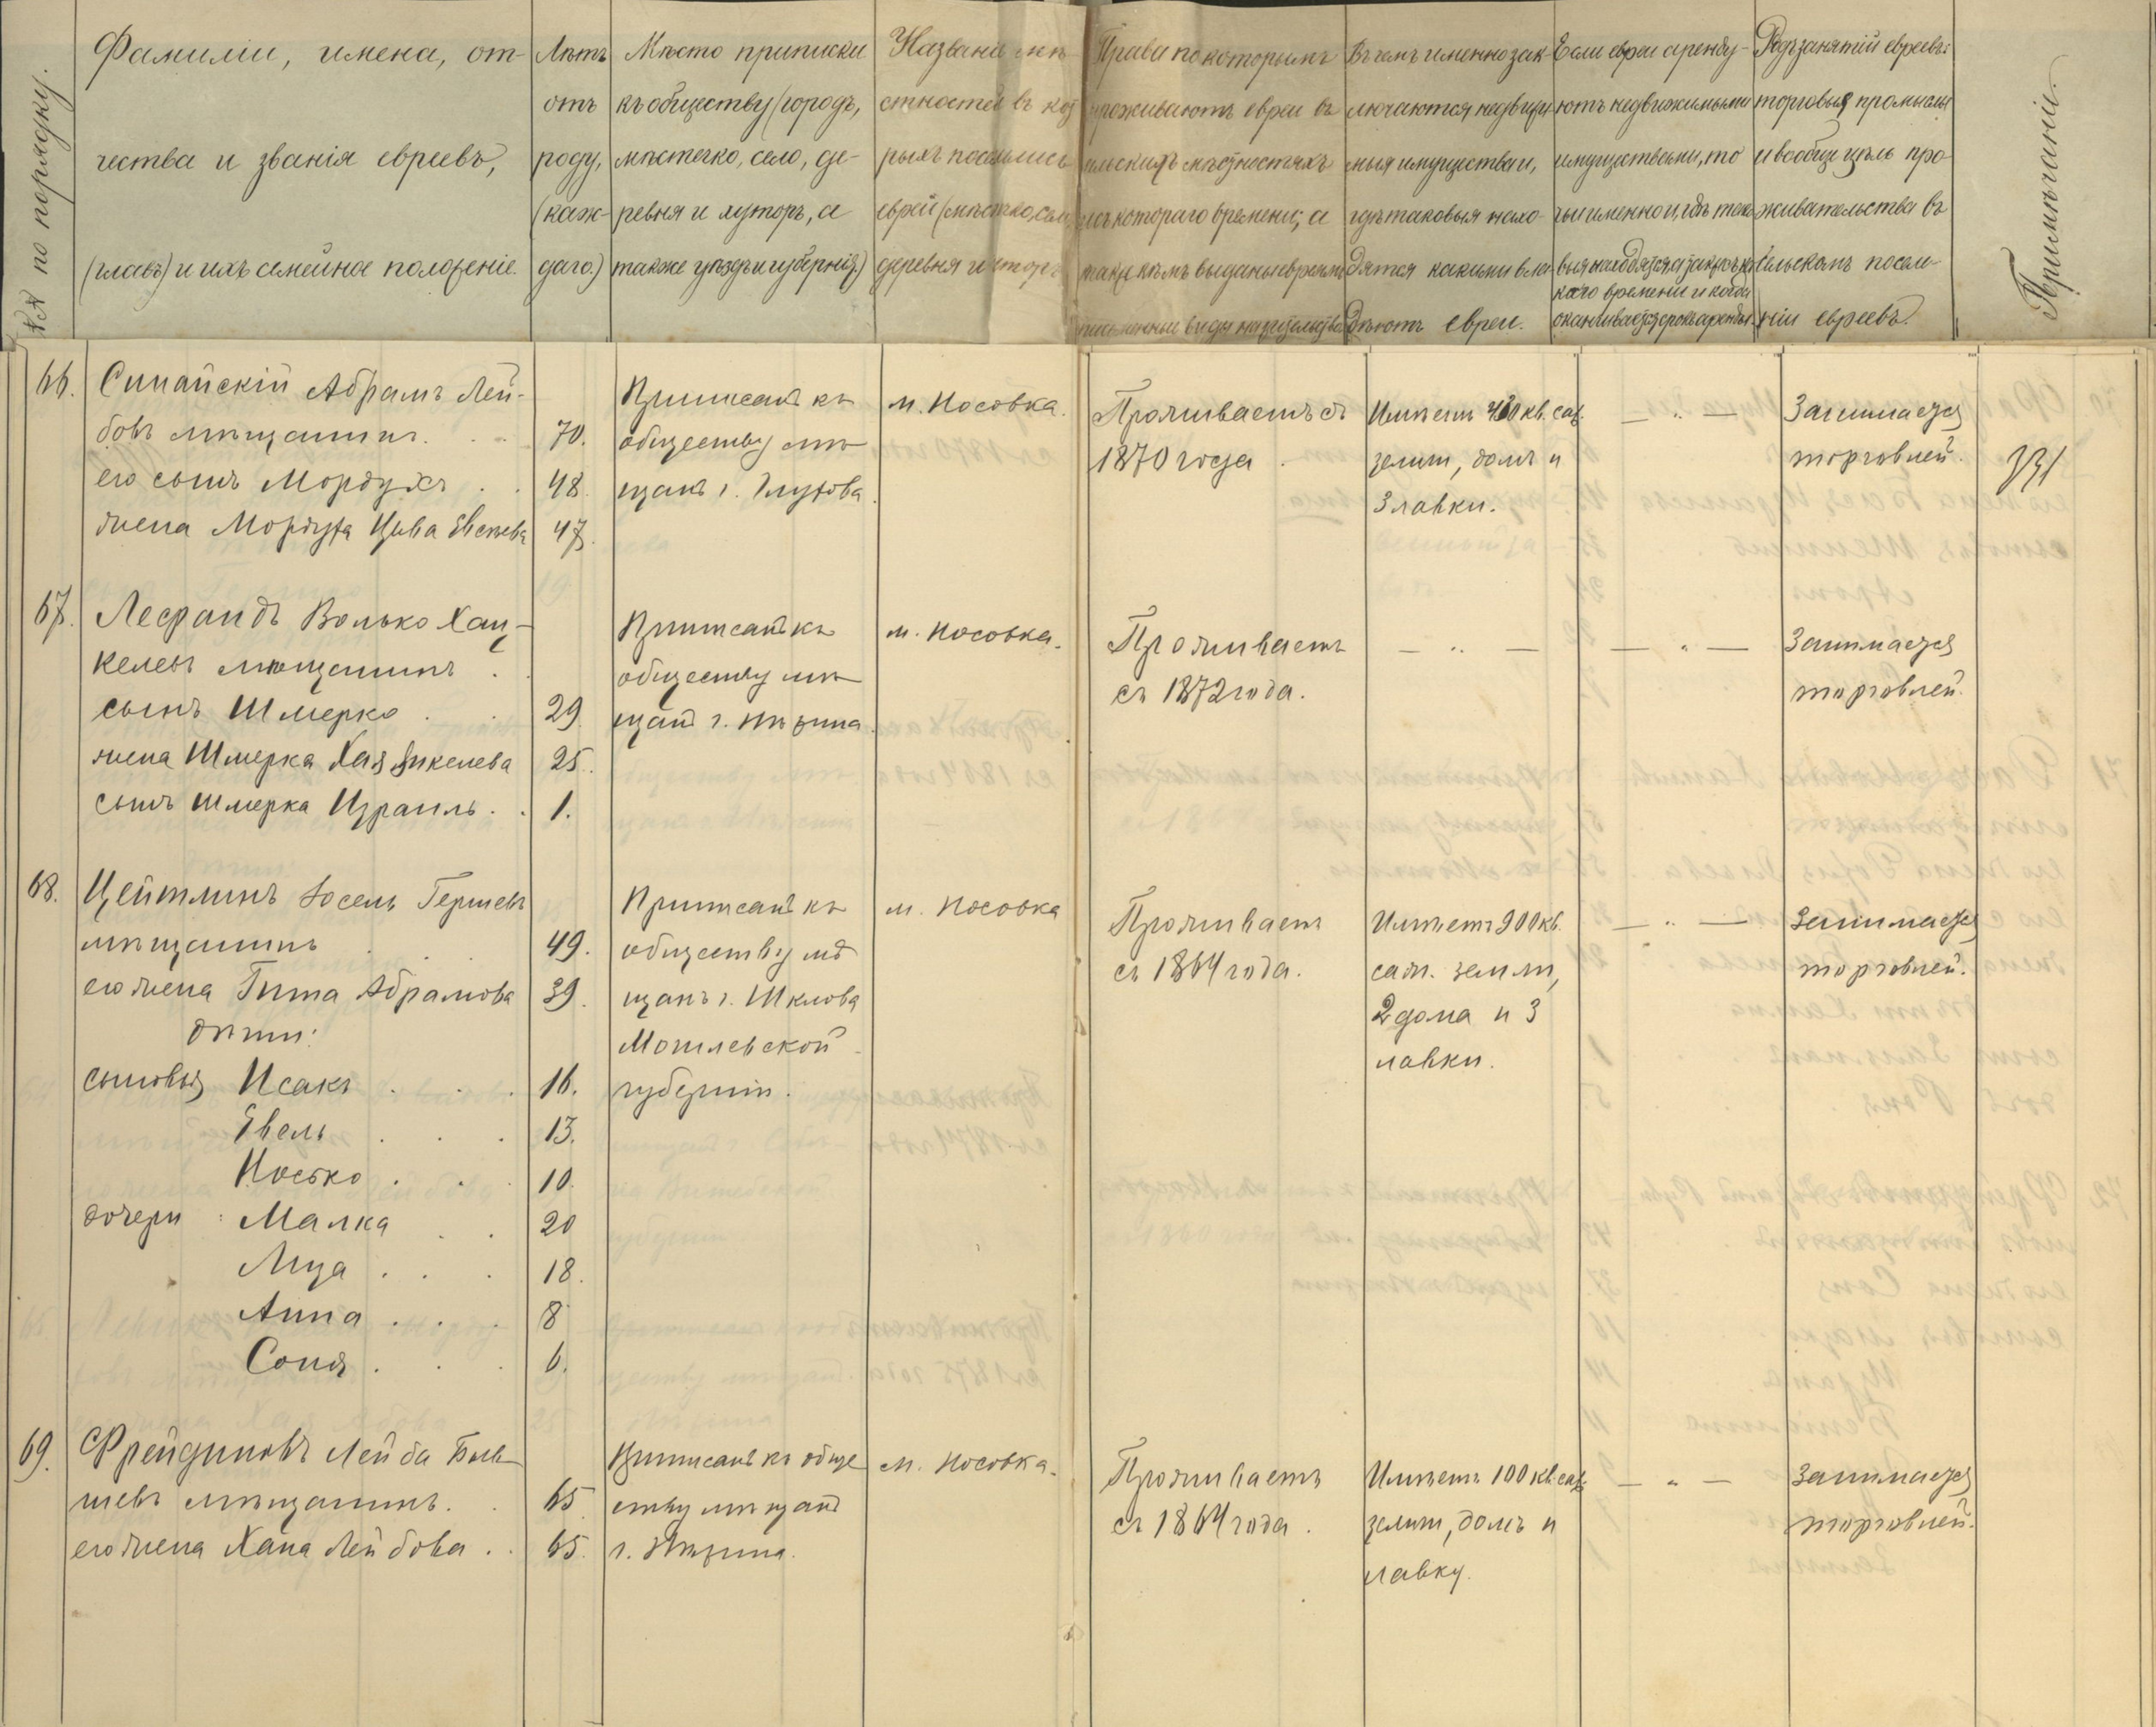 №№ по порядку.
Фамиліи, имена, от-
чества и званія евреевъ,
(главъ) и ихъ семейное положеніе.
Лѣтъ
отъ
роду,
(каж-
даго.)
Мѣсто приписки
къ обществу (городъ,
мѣстечко, село, де-
ревня и хуторъ, а
также уѣздъ и губернія.)
Названіе мѣ-
стностей въ кот
рыхъ поселились
евреи (мѣстечко, село,
деревня и хуторъ
Права по которымъ
проживаютъ евреи въ
сельскихъ мѣстностяхъ
и съ котораго времени; а
также кѣмъ выданы евреямъ
письменные виды на жительство
Въ чемъ именно зак-
лючаются недвижи-
мыя имущества и,
гдѣ таковыя нахо-
дятся какими вла-
дѣютъ евреи.
Если евреи аренду-
ютъ недвижимыми
имуществами, то
чьи именно и, гдѣ тако
выя находятся и за
кого времени и когда
оканчивается срокъ аренды.
Родъ занятій евреевъ:
торговыя промыслы
и вообще цѣль про-
живательства въ
сельскомъ поселе-
ніи евреевъ.
Примѣчаніе.
66. Синайскій Абрамъ Лей-
бовъ мѣщанинъ. 70.
его сынъ Мордухъ . . 48.
жена Мордуха Цива Евсѣева 47.
Приписанъ къ
обществу мѣ
щанъ г. Глухова.
м. Носовка.
Проживаетъ съ
1870 года.
Имѣетъ 430 кв. саж.
земли, домъ и
3 лавки.
— " —
Занимается
торговлей.
67. Лесрандъ Волько Хац-
келевъ мѣщанинъ . .
сынъ Шмерко . . 29.
жена Шмерка Хая 25.
сынъ Шмерка Израиль . . 1.
Приписанъ къ
обществу мѣ
щанъ г. Нѣжина.
м. Носовка.
Проживаетъ
съ 1872 года.
— " —
— " —
Занимается
торговлей.
68. Цейтлинъ Іосель Гершевъ
мѣщанинъ . . . 49.
его жена Гита Абрамова 39.
дѣти:
сыновья Исакъ . . . 16.
Евель . . . 13.
Носько . . . 10.
дочери: Малка . . 20
Лиза . . . 18.
Анна . . . 8
Соня . . . 6.
Приписанъ къ
обществу мѣ
щанъ г. Шклова
Могилевской
губерніи.
м. Носовка
Проживаетъ
съ 1864 года.
Имѣетъ 900 кв.
саж. земли,
2 дома и 3
лавки.
— " —
Занимается
торговлей.
69. Фрейдиновъ Лейба
шевъ мѣщанинъ. . 65.
его жена Хана Лейбова . . 65.
Приписанъ къ обще
ству мѣщанъ
г. Нѣжина.
м. Носовка.
Проживаетъ
съ 1864 года.
Имѣетъ 100 кв. саж.
земли, домъ и
лавку.
— " —
Занимается
торговлей.